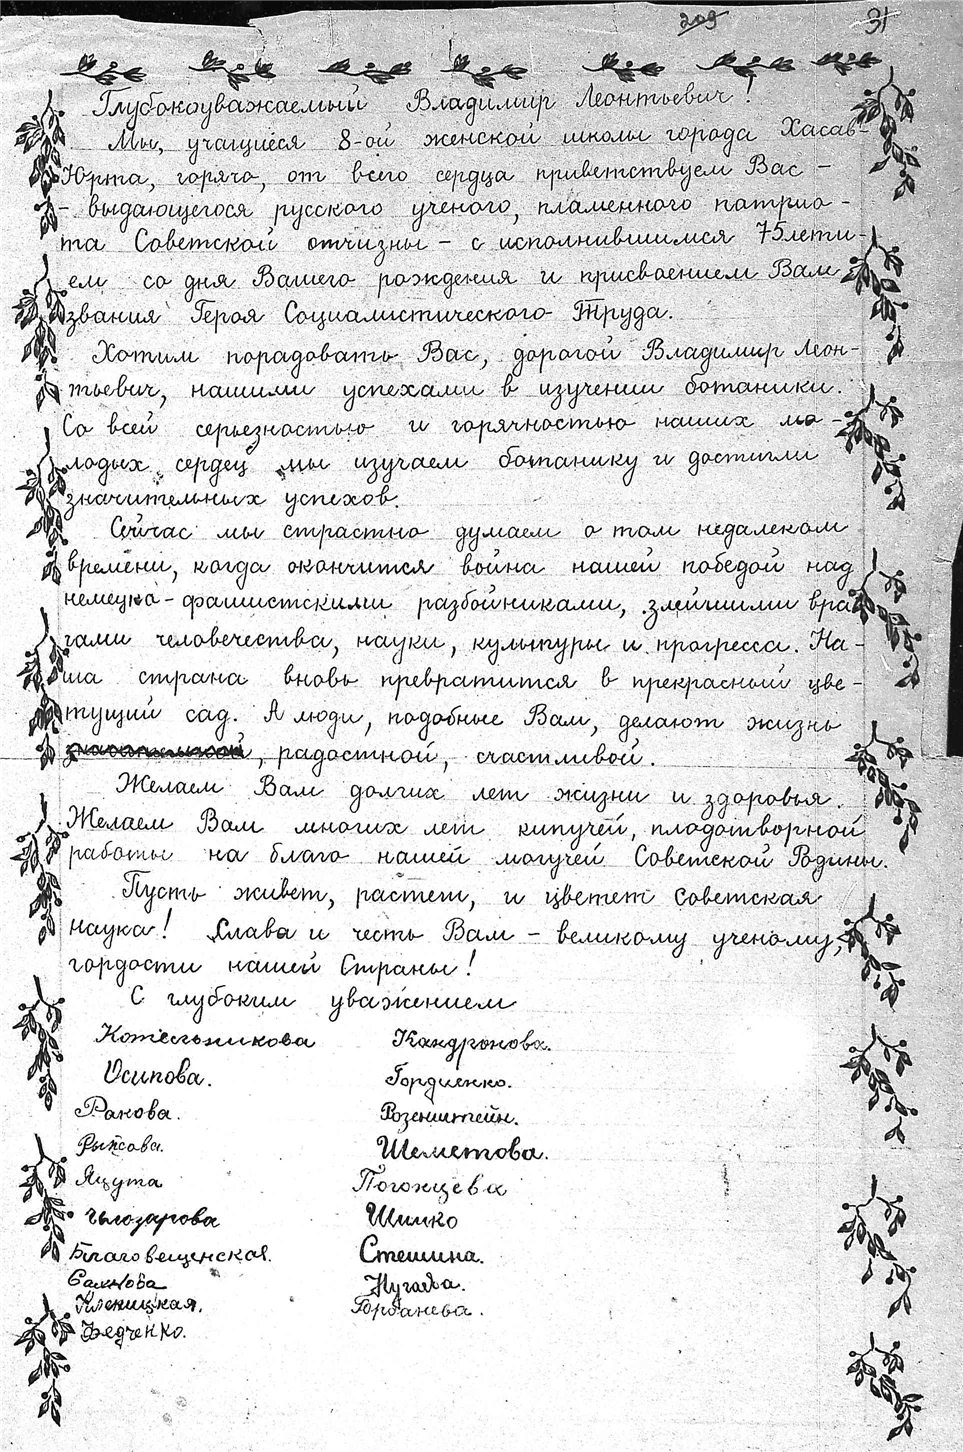 209 31
Глубокоуважаемый Владимир Леонтьевич!
Мы, учащиеся 8-ой женской школы города Хасав-
Юрта, горячо, от всего сердца приветствуем Вас -
- выдающегося русского ученого, пламенного патрио-
та Советской отчизны - с исполнившимся 75лети-
ем со дня Вашего рождения и присвоением Вам
звания Героя Социалистического Труда.
Хотим порадовать Вас, дорогой Владимир Леон-
тьевич, нашими успехами в изучении ботаники.
Со всей серьезностью и горячностью наших мо-
лодых сердец мы изучаем ботанику и достигли
значительных успехов.
Сейчас мы страстно думаем о том недалеком
времени, когда окончится война нашей победой над
немецко-фашистскими разбойниками, злейшими вра
гами человечества, науки, культуры и прогресса. На-
ша страна вновь превратится в прекрасный цве-
тущий сад. А люди, подобные Вам, делают жизнь
, радостной, счастливой.
Желаем Вам долгих лет жизни и здоровья.
Желаем Вам многих лет кипучей, плодотворной
работы на благо нашей могучей Советской Родины.
Пусть живет, растет, и цветет советская
наука! Слава и честь Вам - великому ученому,
гордости нашей Страны!
С глубоким уважением
Котельникова Кандронова.
Осипова. Гордиенко.
Ракова. Розенштейн.
Шеметова.
Яцута Погонцева
Шишко
Благовещенская. Стешина.
Нугаева.
Кленицкая. Горбанева.
Федченко.